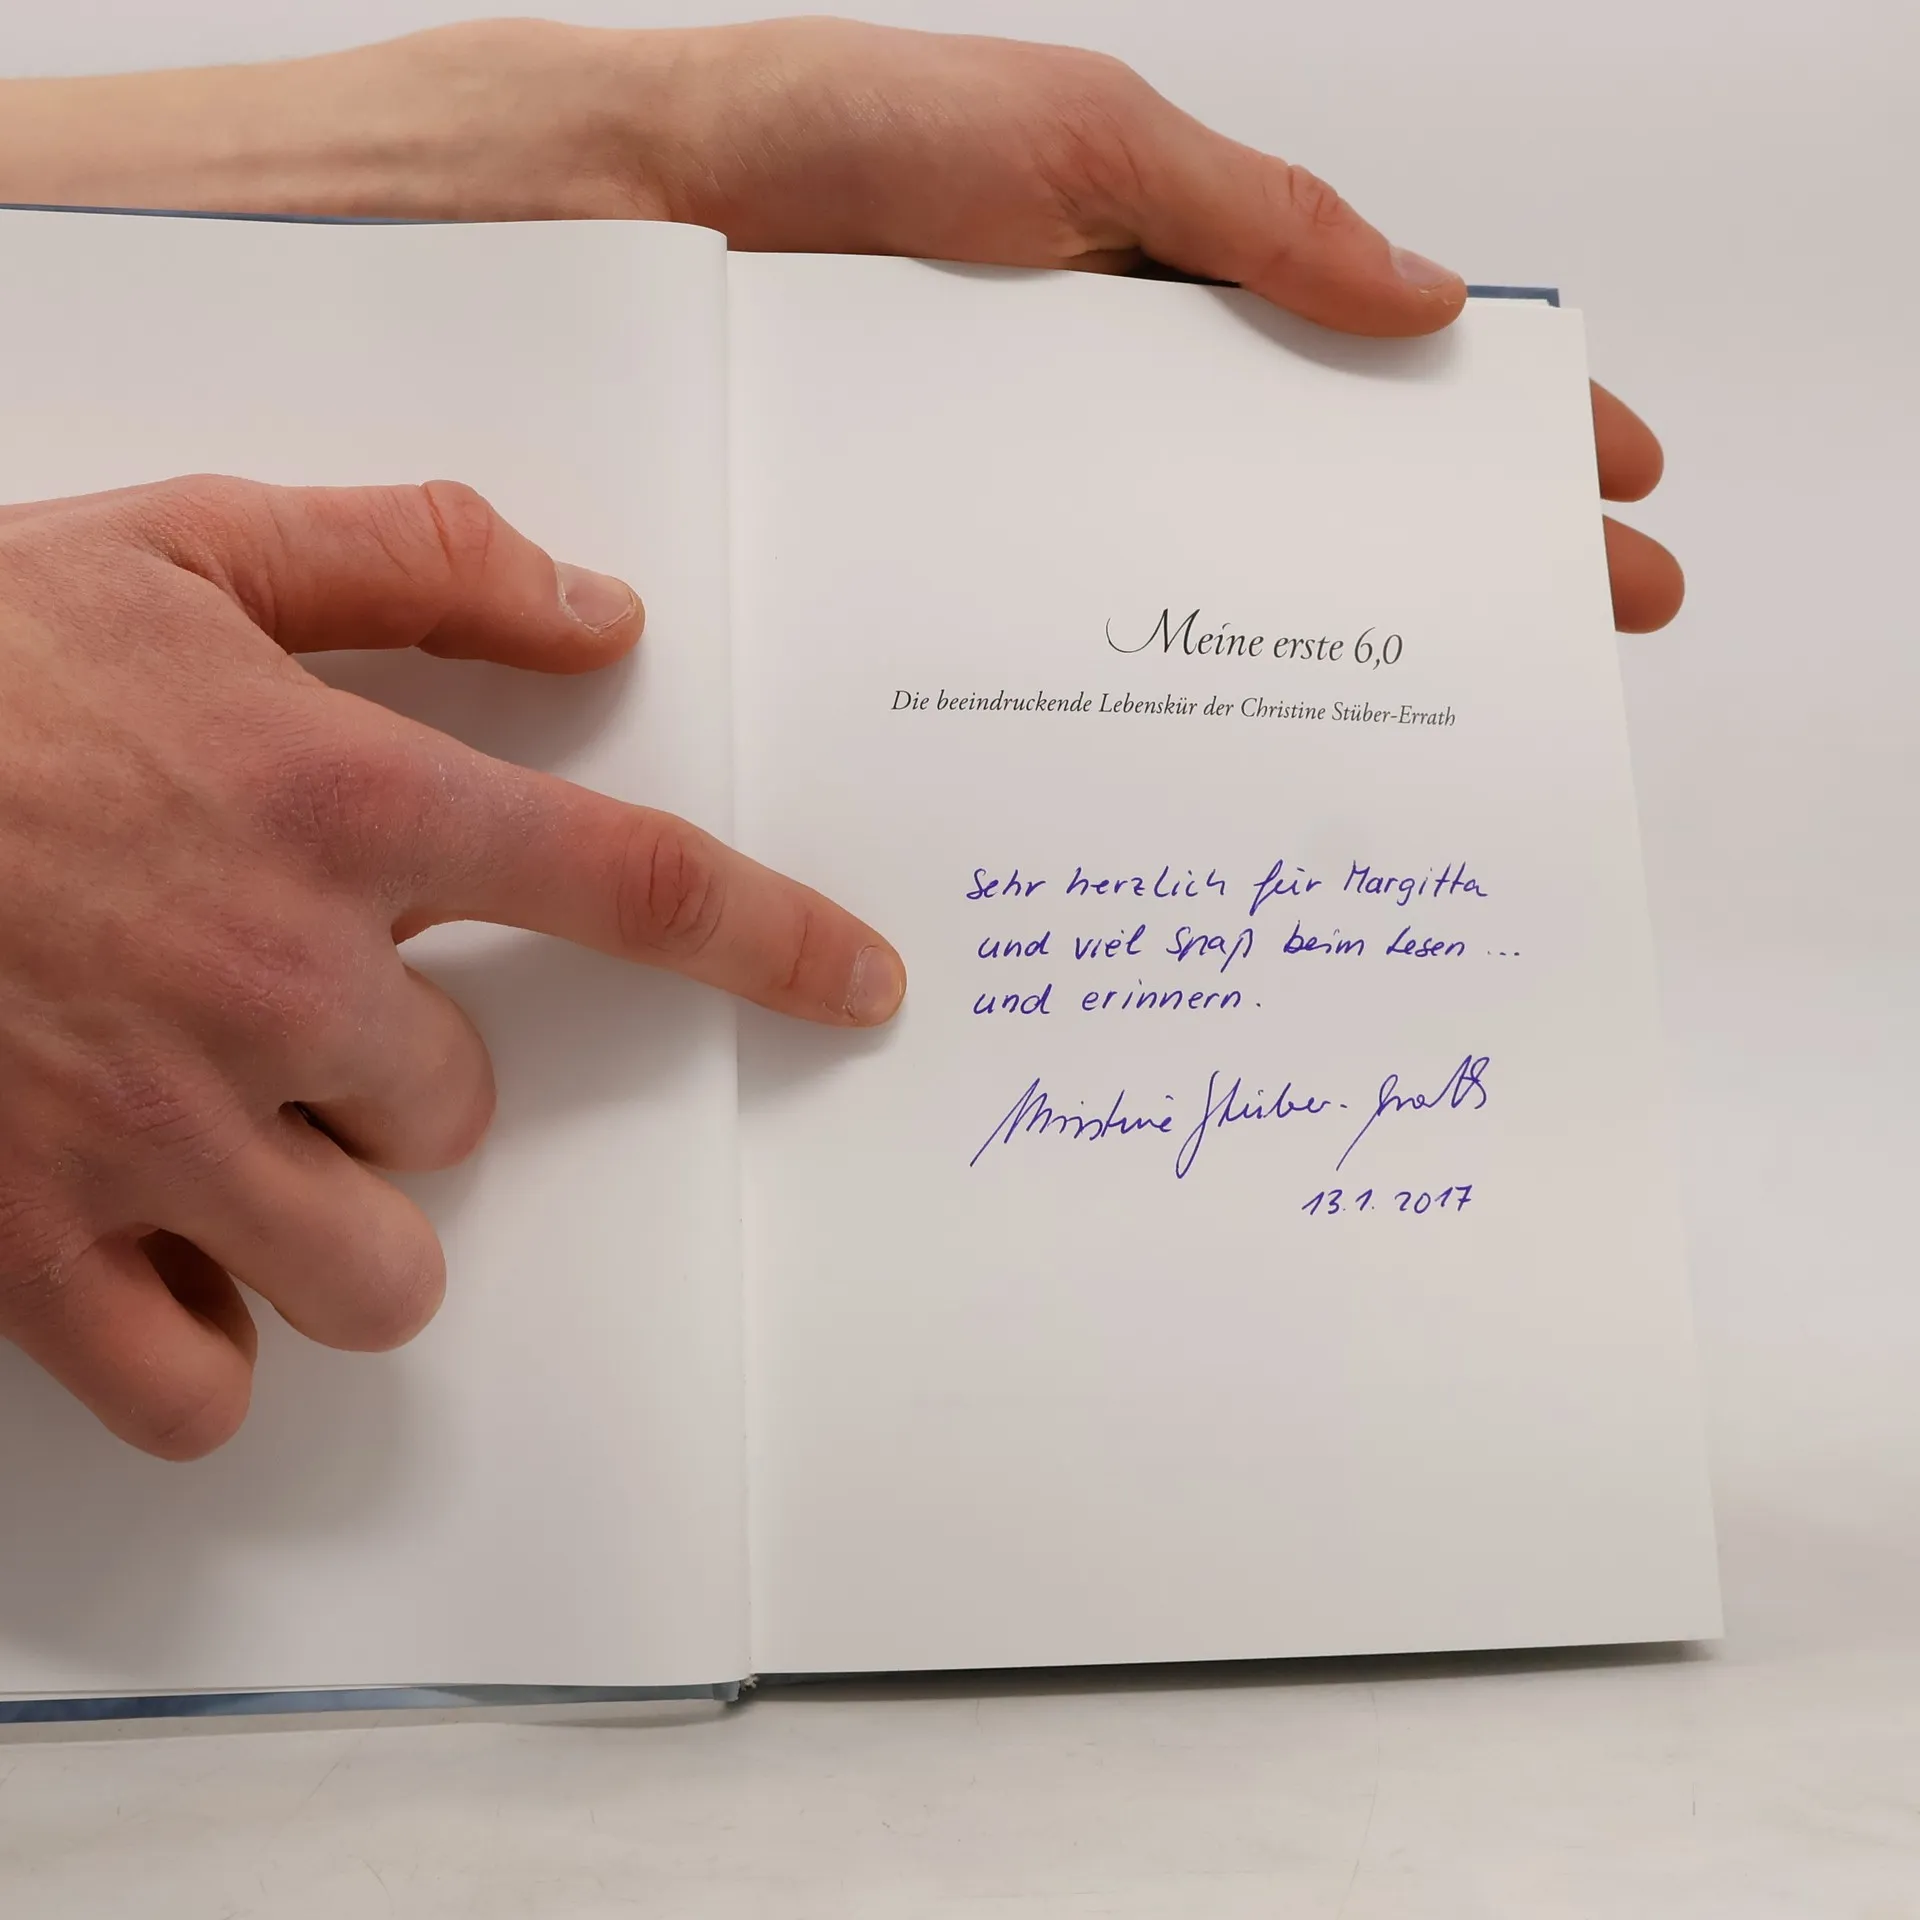 Meine erste 6,0
Die beeindruckende Lebenskür der Christine Stüber-Errath
Sehr herzlich für Margitta
und viel Spaß beim Lesen ...
und erinnern.
Christine Stüber-Errath
13.1.2017